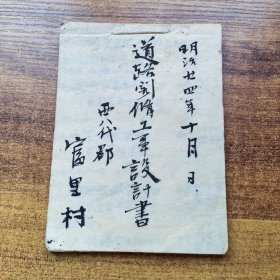 明治廿四年十月 日
道路割修工事設計書
西八代郡
富里村